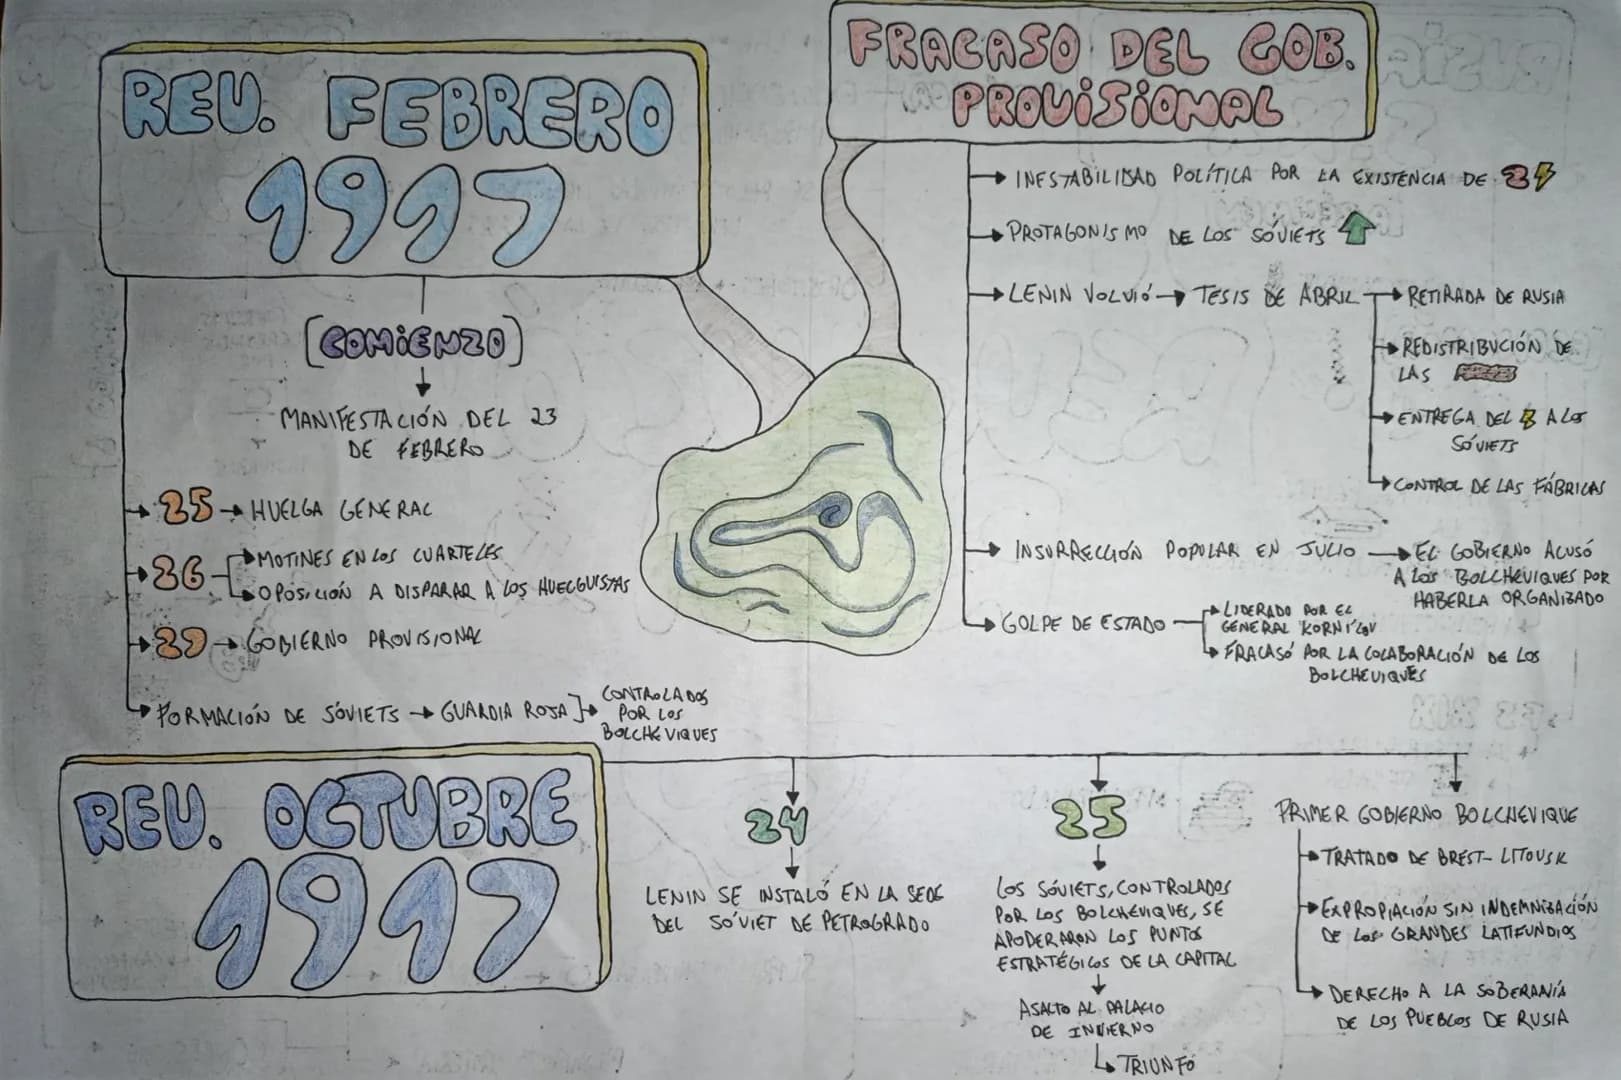 REV. FEBRERO
1917
[COMIENZO]
MANIFESTACIÓN DEL 23
DE FEBRERO
25 → HUELGA GENERAL
26
MOTINES EN LOS CUARTELES
OPOSICIÓN A DISPARAR A LOS HUELGUISTAS
29 → GOBIERNO PROVISIONAL
FORMACIÓN DE SÓVIETS → GUARDIA ROJA
CONTROLADOS
POR LOS
BOLCHEVIQUES
FRACASO DEL GOB.
PROVISIONAL
INESTABILIDAD POLÍTICA POR LA EXISTENCIA DE 2
PROTAGONISMO DE LOS SÓVIETS
LENIN VOLVIÓ → TESIS DE ABRIL → RETIRADA DE RUSIA
REDISTRIBUCIÓN DE
LAS
ENTREGA DEL A LOS
SÓVIETS
CONTROL DE LAS FÁBRICAS
INSURRECCIÓN POPULAR EN JULIO → EL GOBIERNO ACUSÓ
A LOS BOLCHEVIQUES POR
HABERLA ORGANIZADO
GOLPE DE ESTADO
LIDERADO POR EL
GENERAL KORNÍLOV
FRACASÓ POR LA COLABORACIÓN DE LOS
BOLCHEVIQUES
REV. OCTUBRE
1917
24
LENIN SE INSTALÓ EN LA SEDE
DEL SÓVIET DE PETROGRADO
25
LOS SÓVIETS, CONTROLADOS
POR LOS BOLCHEVIQUES, SE
APODERARON LOS PUNTOS
ESTRATÉGICOS DE LA CAPITAL
ASALTO AL PALACIO
DE INVIERNO
TRIUNFÓ
PRIMER GOBIERNO BOLCHEVIQUE
TRATADO DE BREST-LITOVSK
EXPROPIACIÓN SIN INDEMNIZACIÓN
DE LOS GRANDES LATIFUNDIOS
DERECHO A LA SOBERANÍA
DE LOS PUEBLOS DE RUSIA